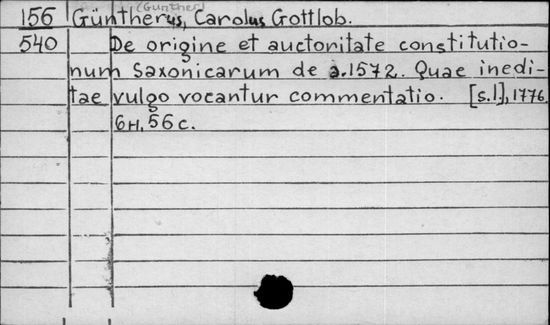 (Günther)
156 Güntherus, Carolus Gottlob.
540 De origine et auctoritate constitutio-
num Saxonicarum de a.1572. Quae inedi-
tae vulgo vocantur commentatio. [s.l.], 1776
6H, 56 c.